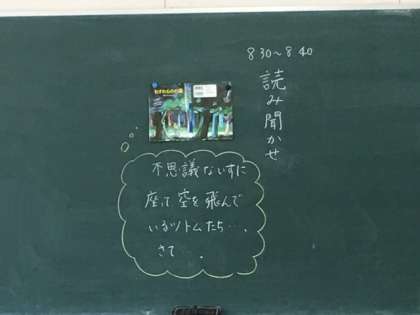 8:30~8:40
読み聞かせ
不思議ないすに
座って空を飛んで
いるツトムたち…。
さて 。